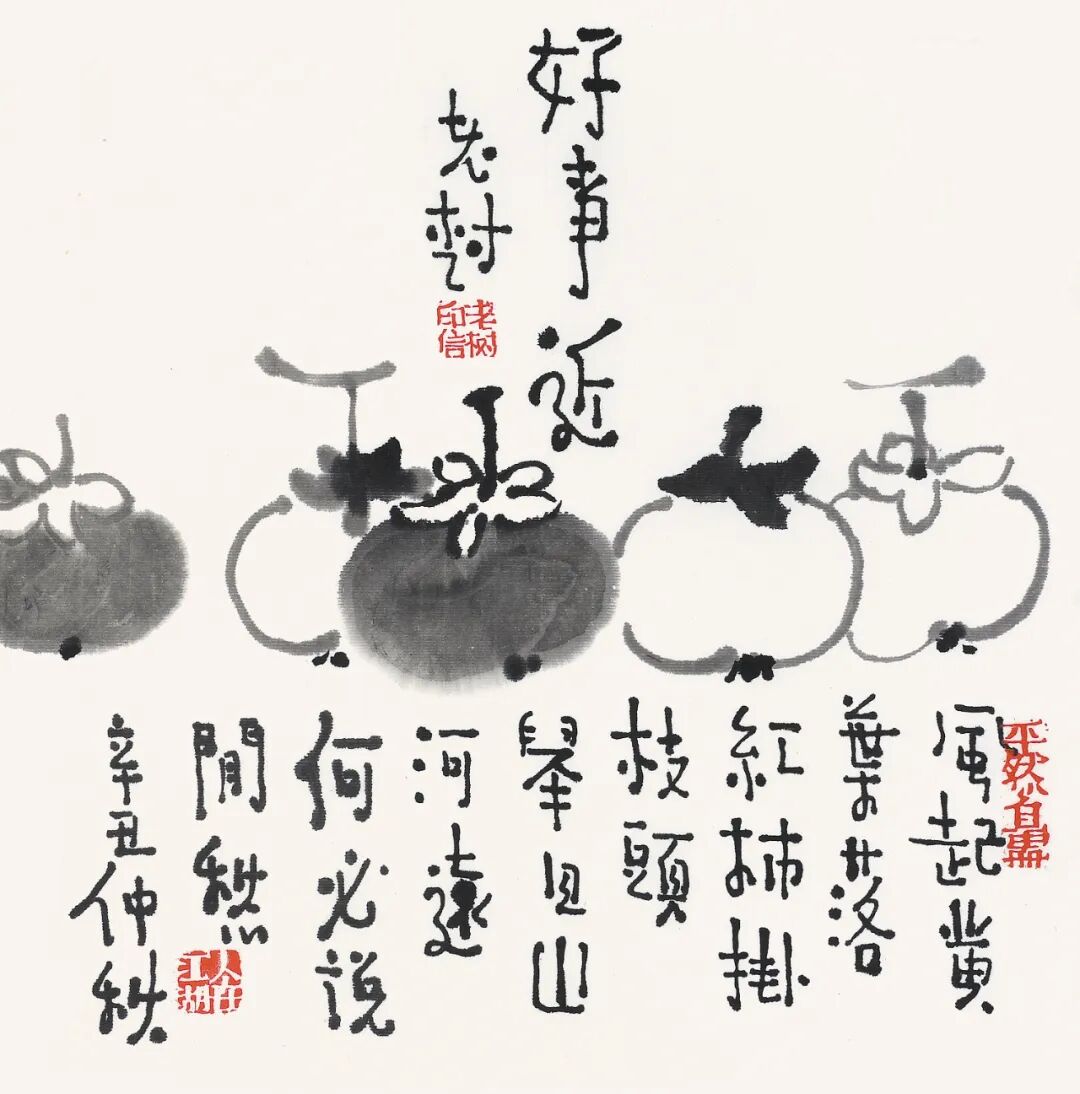 好事近
老樹
老树
印信
風起黃
葉落
紅柿掛
枝頭
舉目山
河遠
何必説
閒愁
人在
江湖
辛丑仲秋